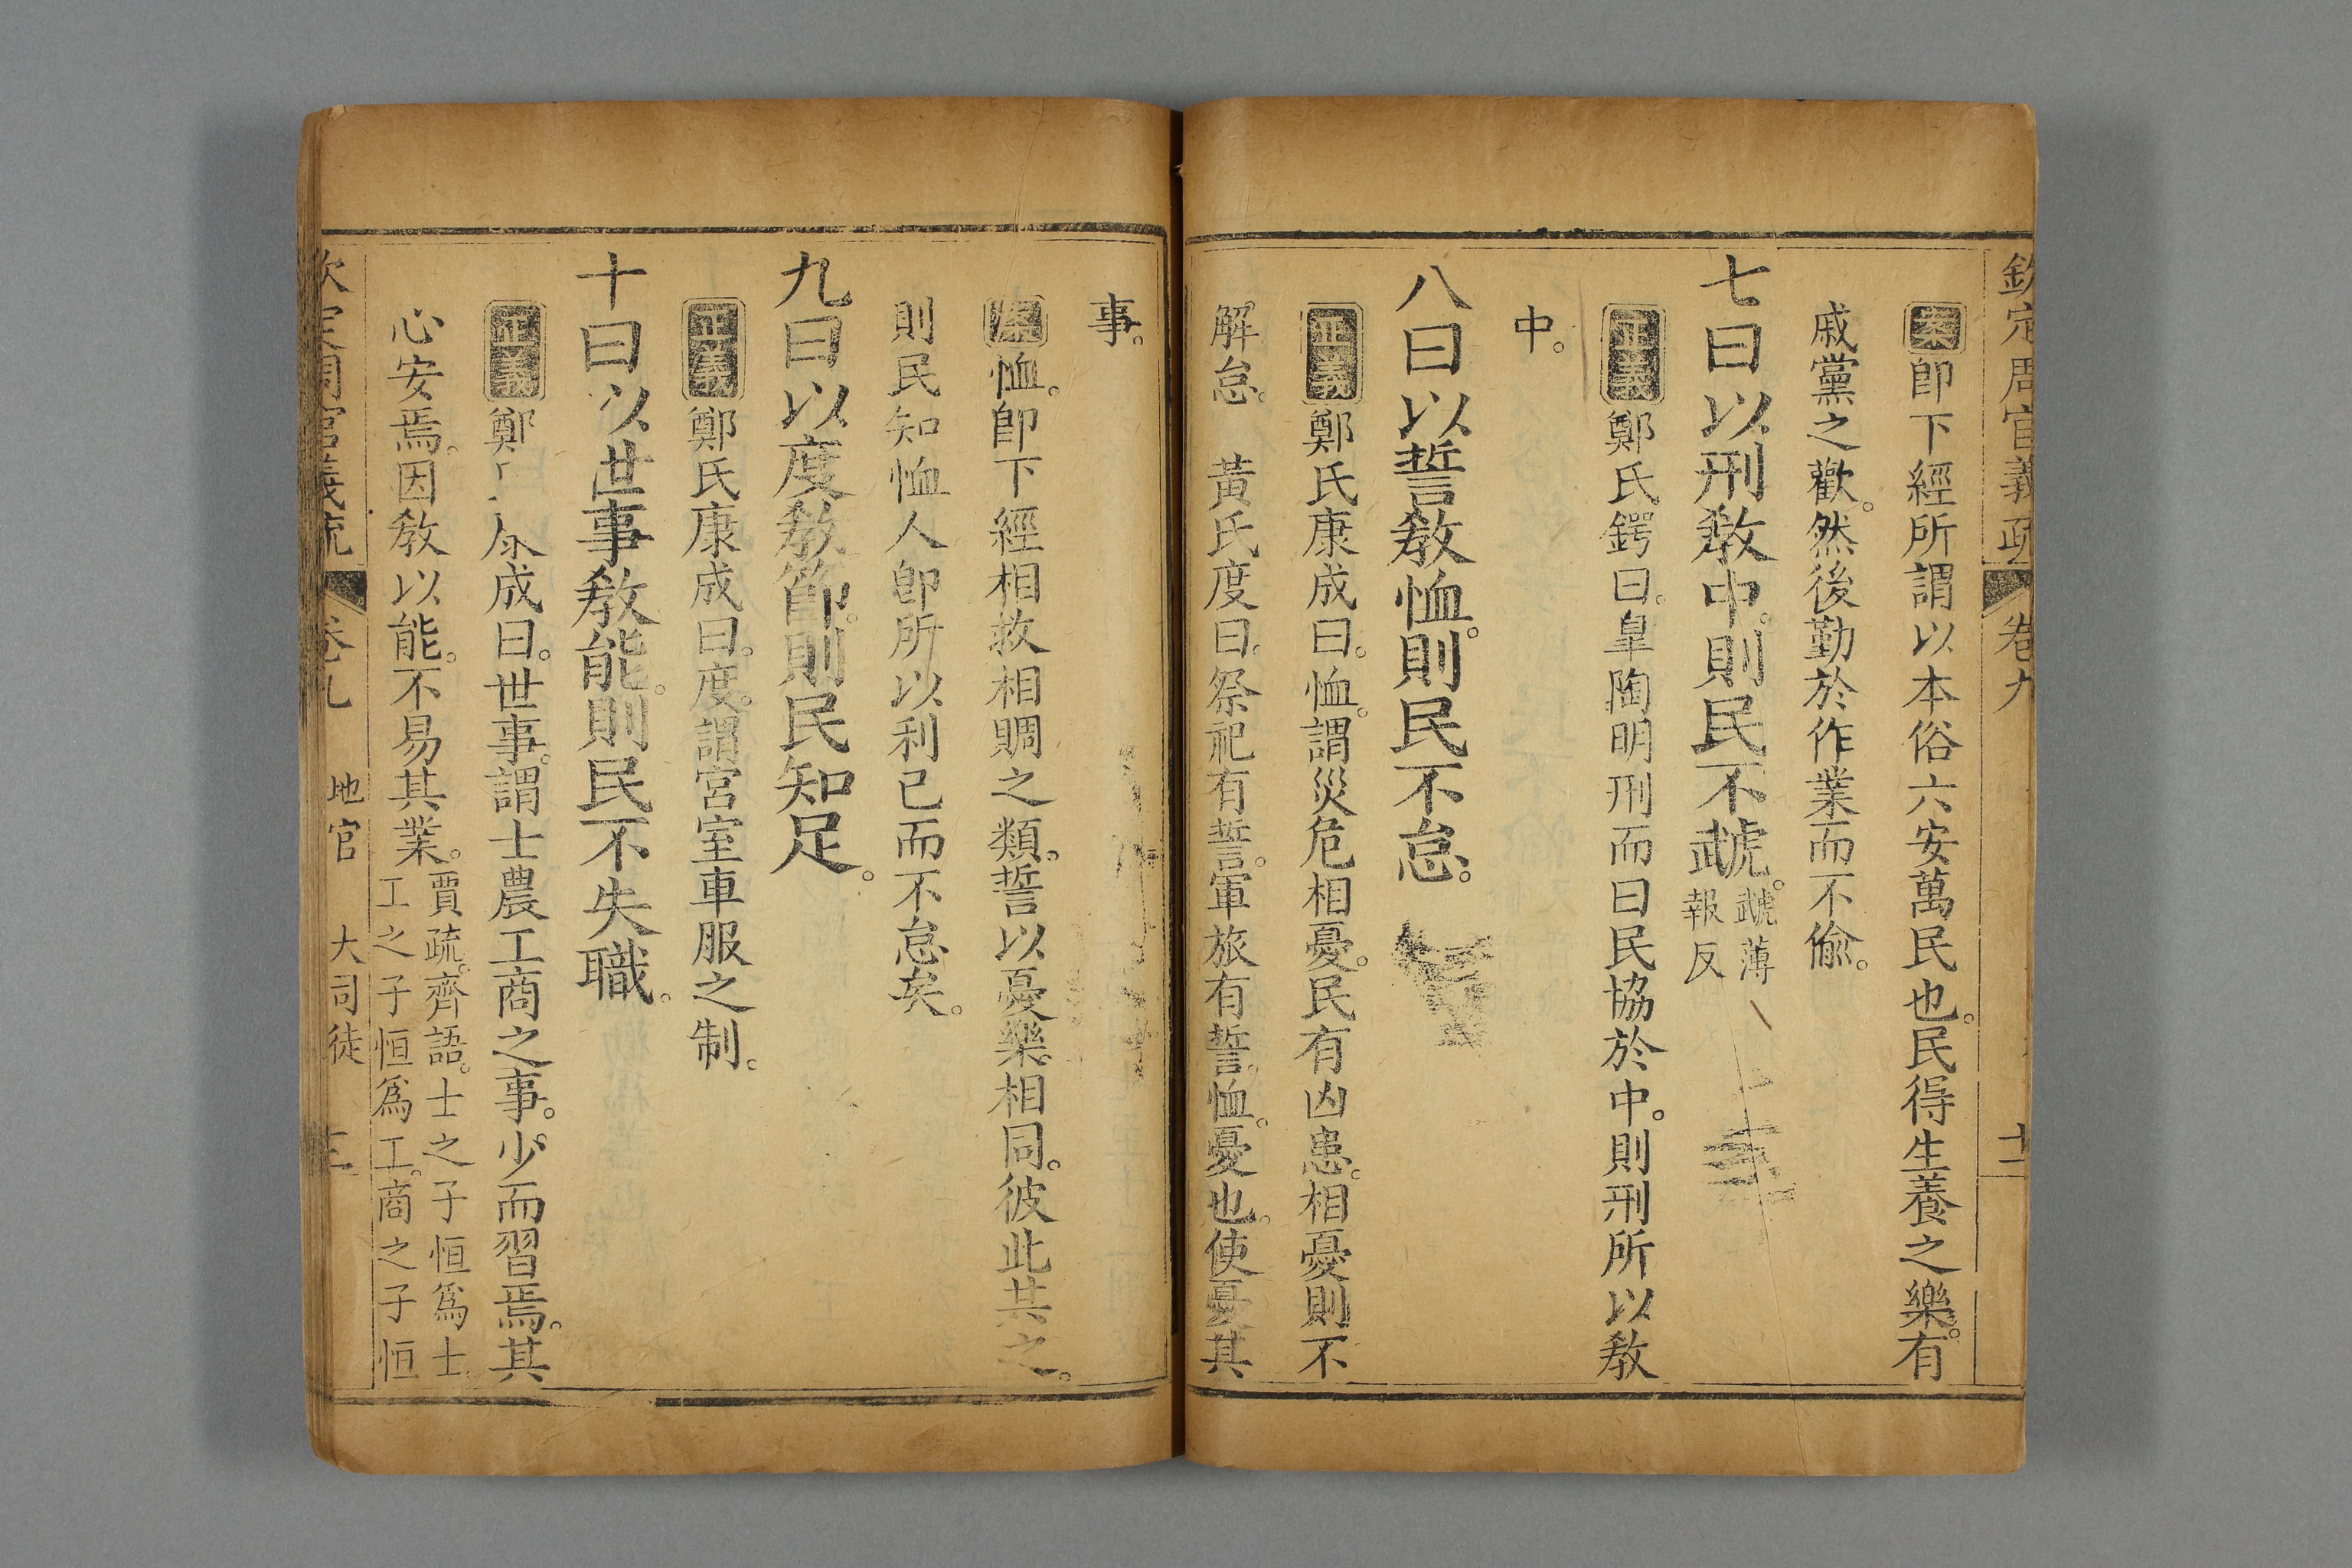 欽定周官義疏 卷九 十二
案卽下經所謂以本俗六安萬民也。民得生養之樂。有
戚黨之歡。然後勤於作業而不偷。
七曰以刑敎中。則民不虣。虣薄報反
正義鄭氏鍔曰。皐陶明刑而曰民協於中。則刑所以敎
中。
八曰以誓敎恤。則民不怠。
正義鄭氏康成曰。恤。謂災危相憂。民有凶患。相憂則不
解怠。 黃氏度曰。祭祀有誓。軍旅有誓。恤。憂也。使憂其
事。
案恤。卽下經相救相賙之類。誓以憂樂相同。彼此共之。
則民知恤人卽所以利已而不怠矣。
九曰以度敎節。則民知足。
正義鄭氏康成曰。度。謂宮室車服之制。
十曰以世事敎能。則民不失職。
正義鄭 康成曰。世事。謂士農工商之事。少而習焉。其
心安焉。因敎以能。不易其業。賈疏。齊語。士之子恒爲士。
工之子恒爲工。商之子恒
欽定周官義疏 卷九 地官 大司徒